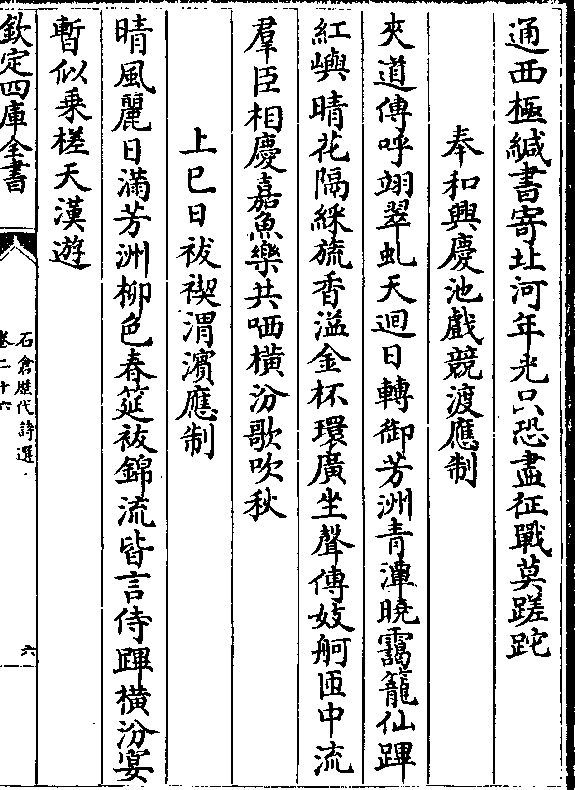 通西極緘書寄北河年光只恐盡征戰莫蹉跎
奉和興慶池戲競渡應制
夾道傳呼翊翠虬天迴日轉御芳洲青潭曉靄籠仙蹕
紅嶼晴花隔綵旒香溢金杯環廣坐聲傳妓舸匝中流
羣臣相慶嘉魚樂共哂橫汾歌吹秋
上巳日祓禊渭濱應制
晴風麗日滿芳洲柳色春筵祓錦流皆言侍蹕橫汾宴
暫似乗槎天漢遊
欽定四庫全書
石倉歴代詩選
卷二十六
六